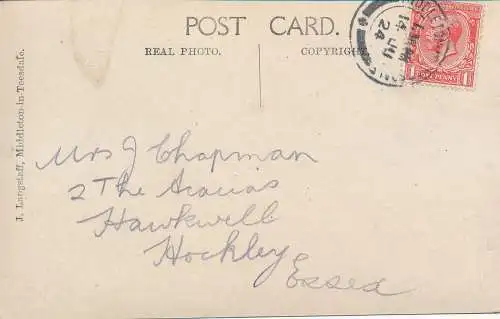 POST CARD.
REAL PHOTO. COPYRIGHT.
14 JU
24
ONE PENNY
J. Langstaff, Middleton-in-Teesdale.
Mrs J Chapman
2 The Acacias
Hawkwell
Hockley
Essex